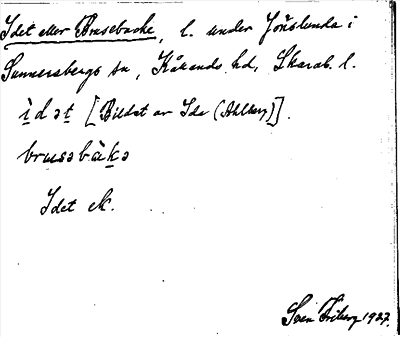 Idet eller Brusebacke, l. under Jönslunda i
Sunnersbergs sn, Kåkinds hd, Skarab. l.
ìdət [Bildat av Ida (Ahlberg)].
brusəbàkə
Idet ek.
Sven Friberg 1927.